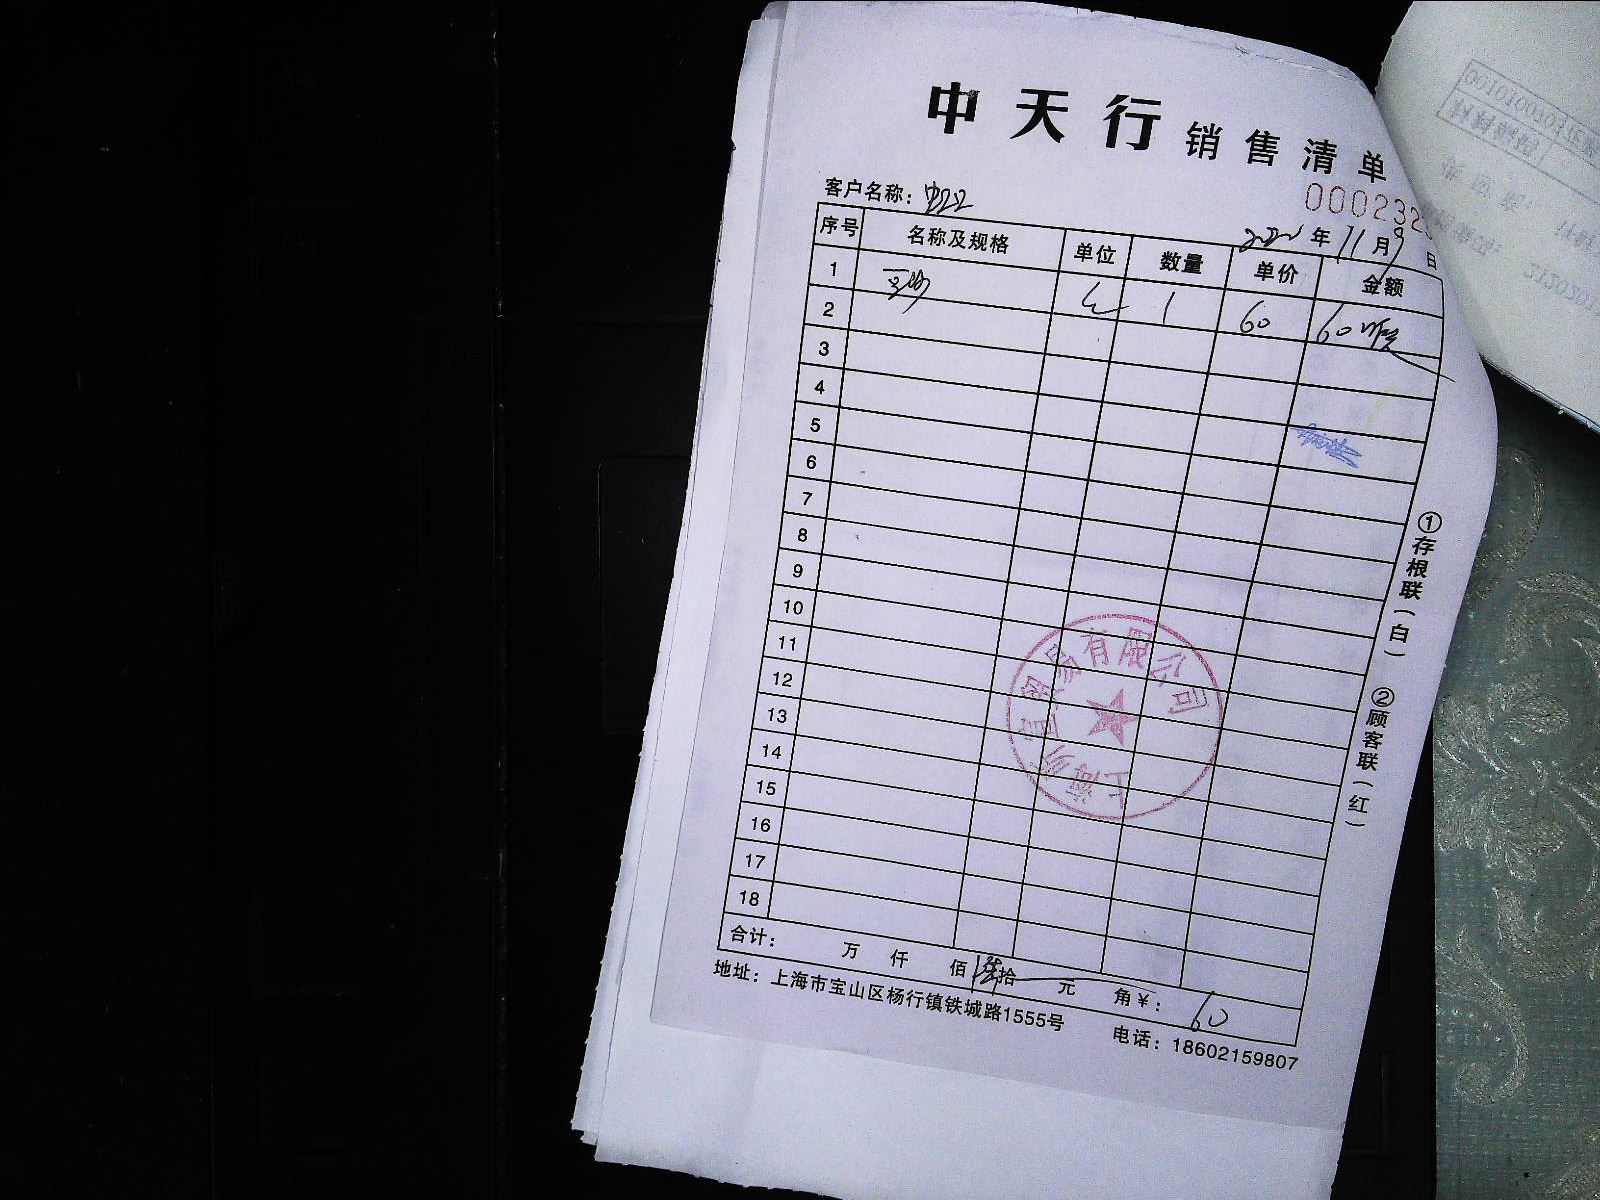 中天行 销售清单
客户名称：
000232
年 11 月 9 日
序号 名称及规格 单位 数量 单价 金额
1 1 60 60
2
3
4
5
6
7
8
9
10
11
12
13
14
15
16
17
18
合计： 万 仟 佰 陆拾 元 角 ￥： 60
地址：上海市宝山区杨行镇铁城路1555号 电话：18602159807
①存根联（白） ②顾客联（红）
贸易有限公司